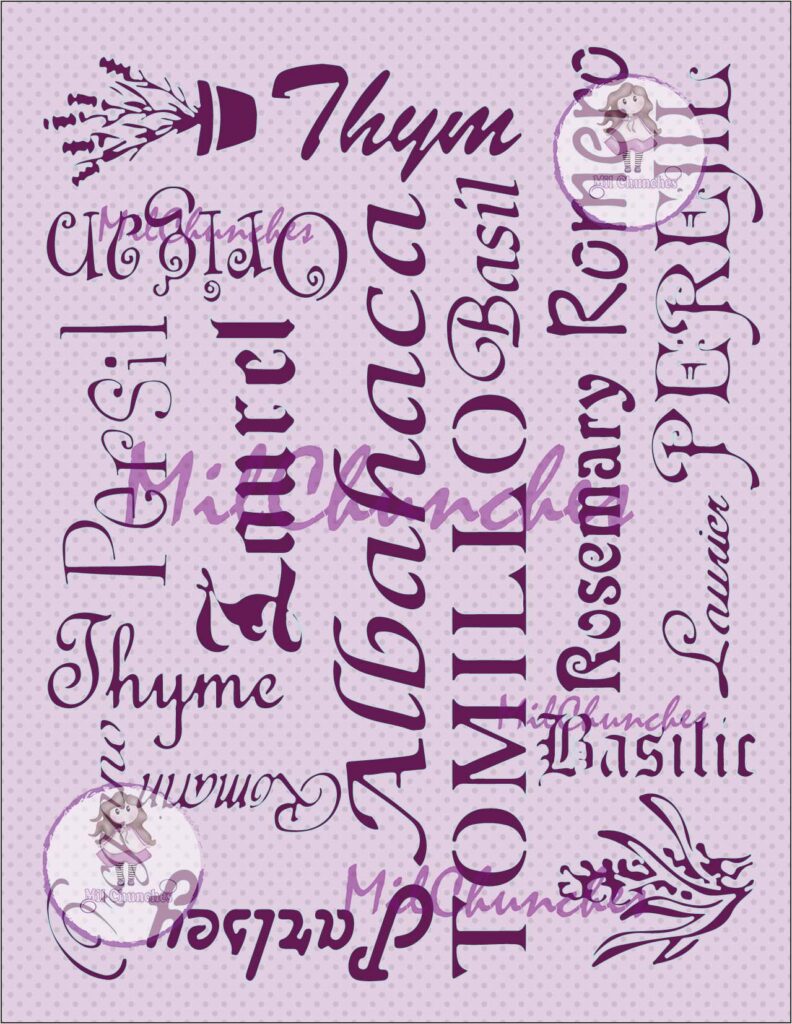 Thym
Romero
Mil Chunches
PEREJIL
Origan
MilChunches
Basil
Albahaca
Persil
Laurel
TOMILLO
Rosemary
MilChunches
Laurier
Thyme
MilChunches
Basilic
Oregano
Romarin
Mil Chunches
Parsley
MilChunches